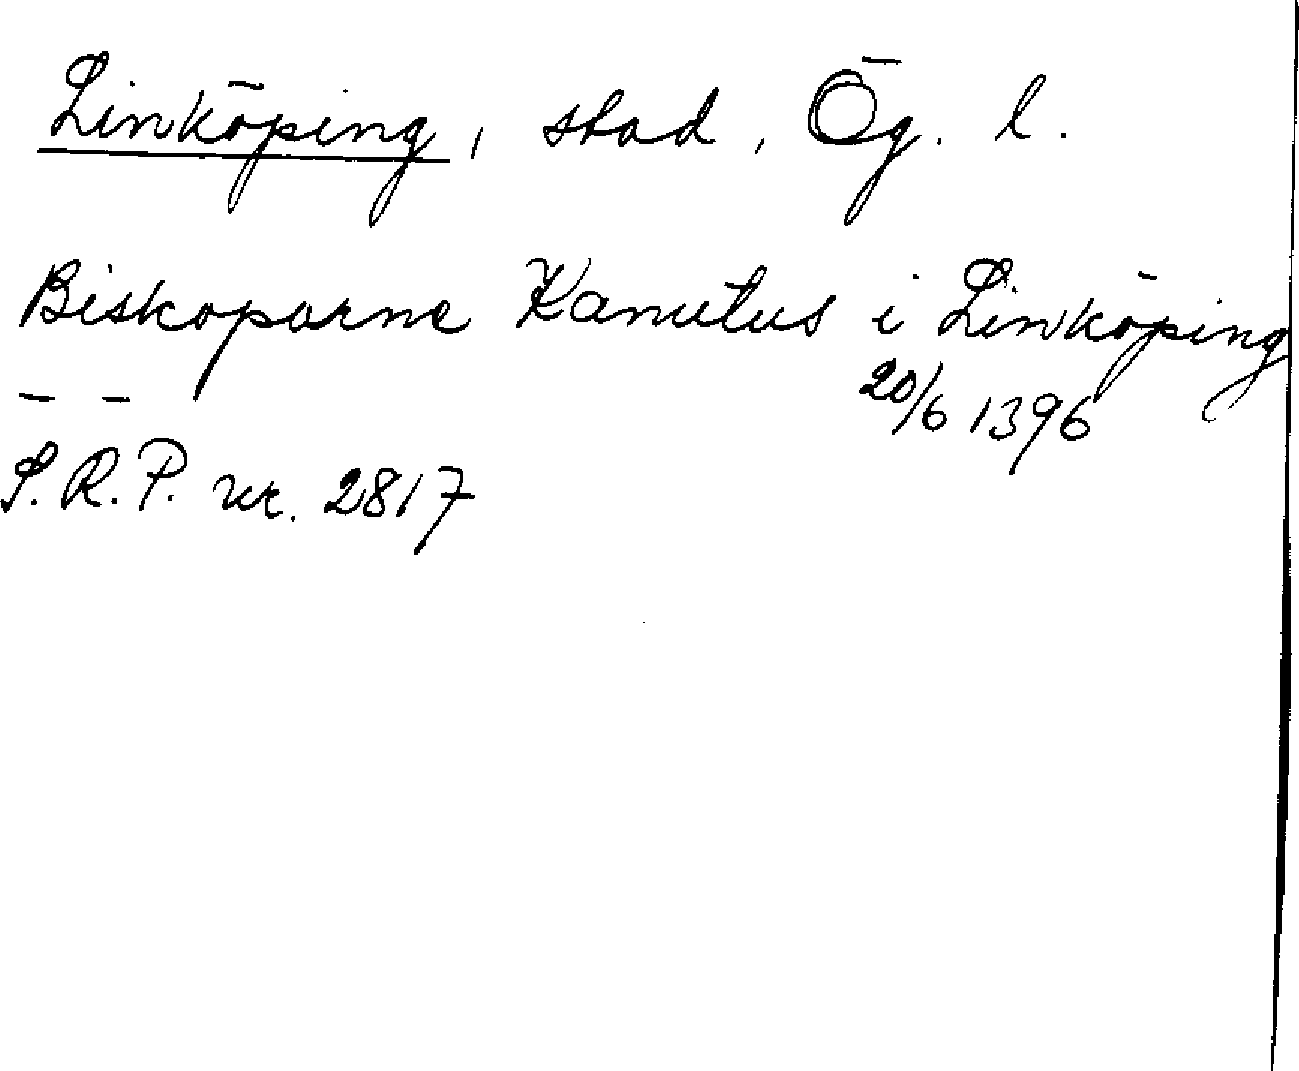 Linköping, stad, Ög. l.
Biskoparne Kanutus i Linköping
— — 20/6 1396
S.R.P. nr. 2817